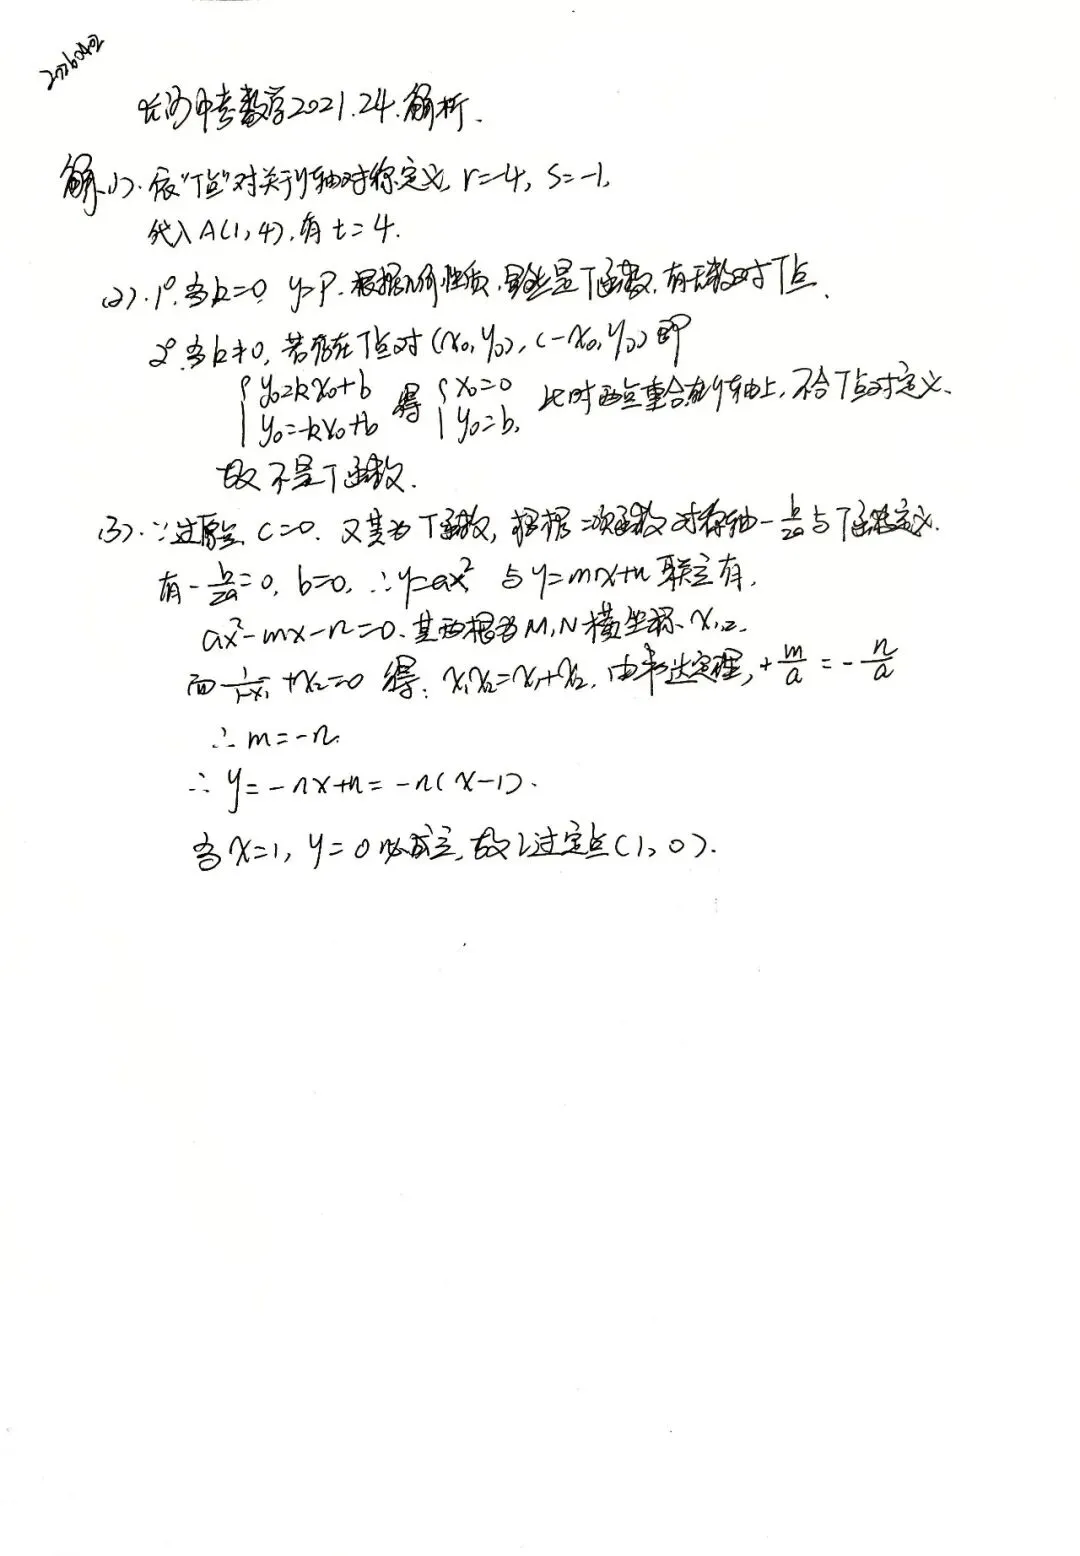 20260402
长沙中考数学2021.24.解析.
解(1).依"T点"对关于y轴对称定义, r=4, s=-1,
代入A(1,4),有 t=4.
(2).1°.当k=0, y=p.根据几何性质,显然是T函数.有无数对T点.
2°.当k≠0,若存在T点对(x₀,y₀),(-x₀,y₀)即
{y₀=kx₀+b y₀=-kx₀+b 得 {x₀=0 y₀=b, 此时两点重合在y轴上,不合T点对定义.
故不是T函数.
(3).∵过原点, c=0. 又其为T函数,根据二次函数对称轴-b/2a与T函数定义.
有-b/2a=0, b=0, ∴y=ax² 与y=mx+n联立有,
ax²-mx-n=0.其两根为M,N横坐标、x₁,₂.
而1/(1-x₁)+x₂=0 得: x₁x₂=x₁+x₂, 由韦达定理,+m/a=-n/a
∴m=-n.
∴y=-nx+n=-n(x-1).
当x=1, y=0必成立,故l过定点(1,0).